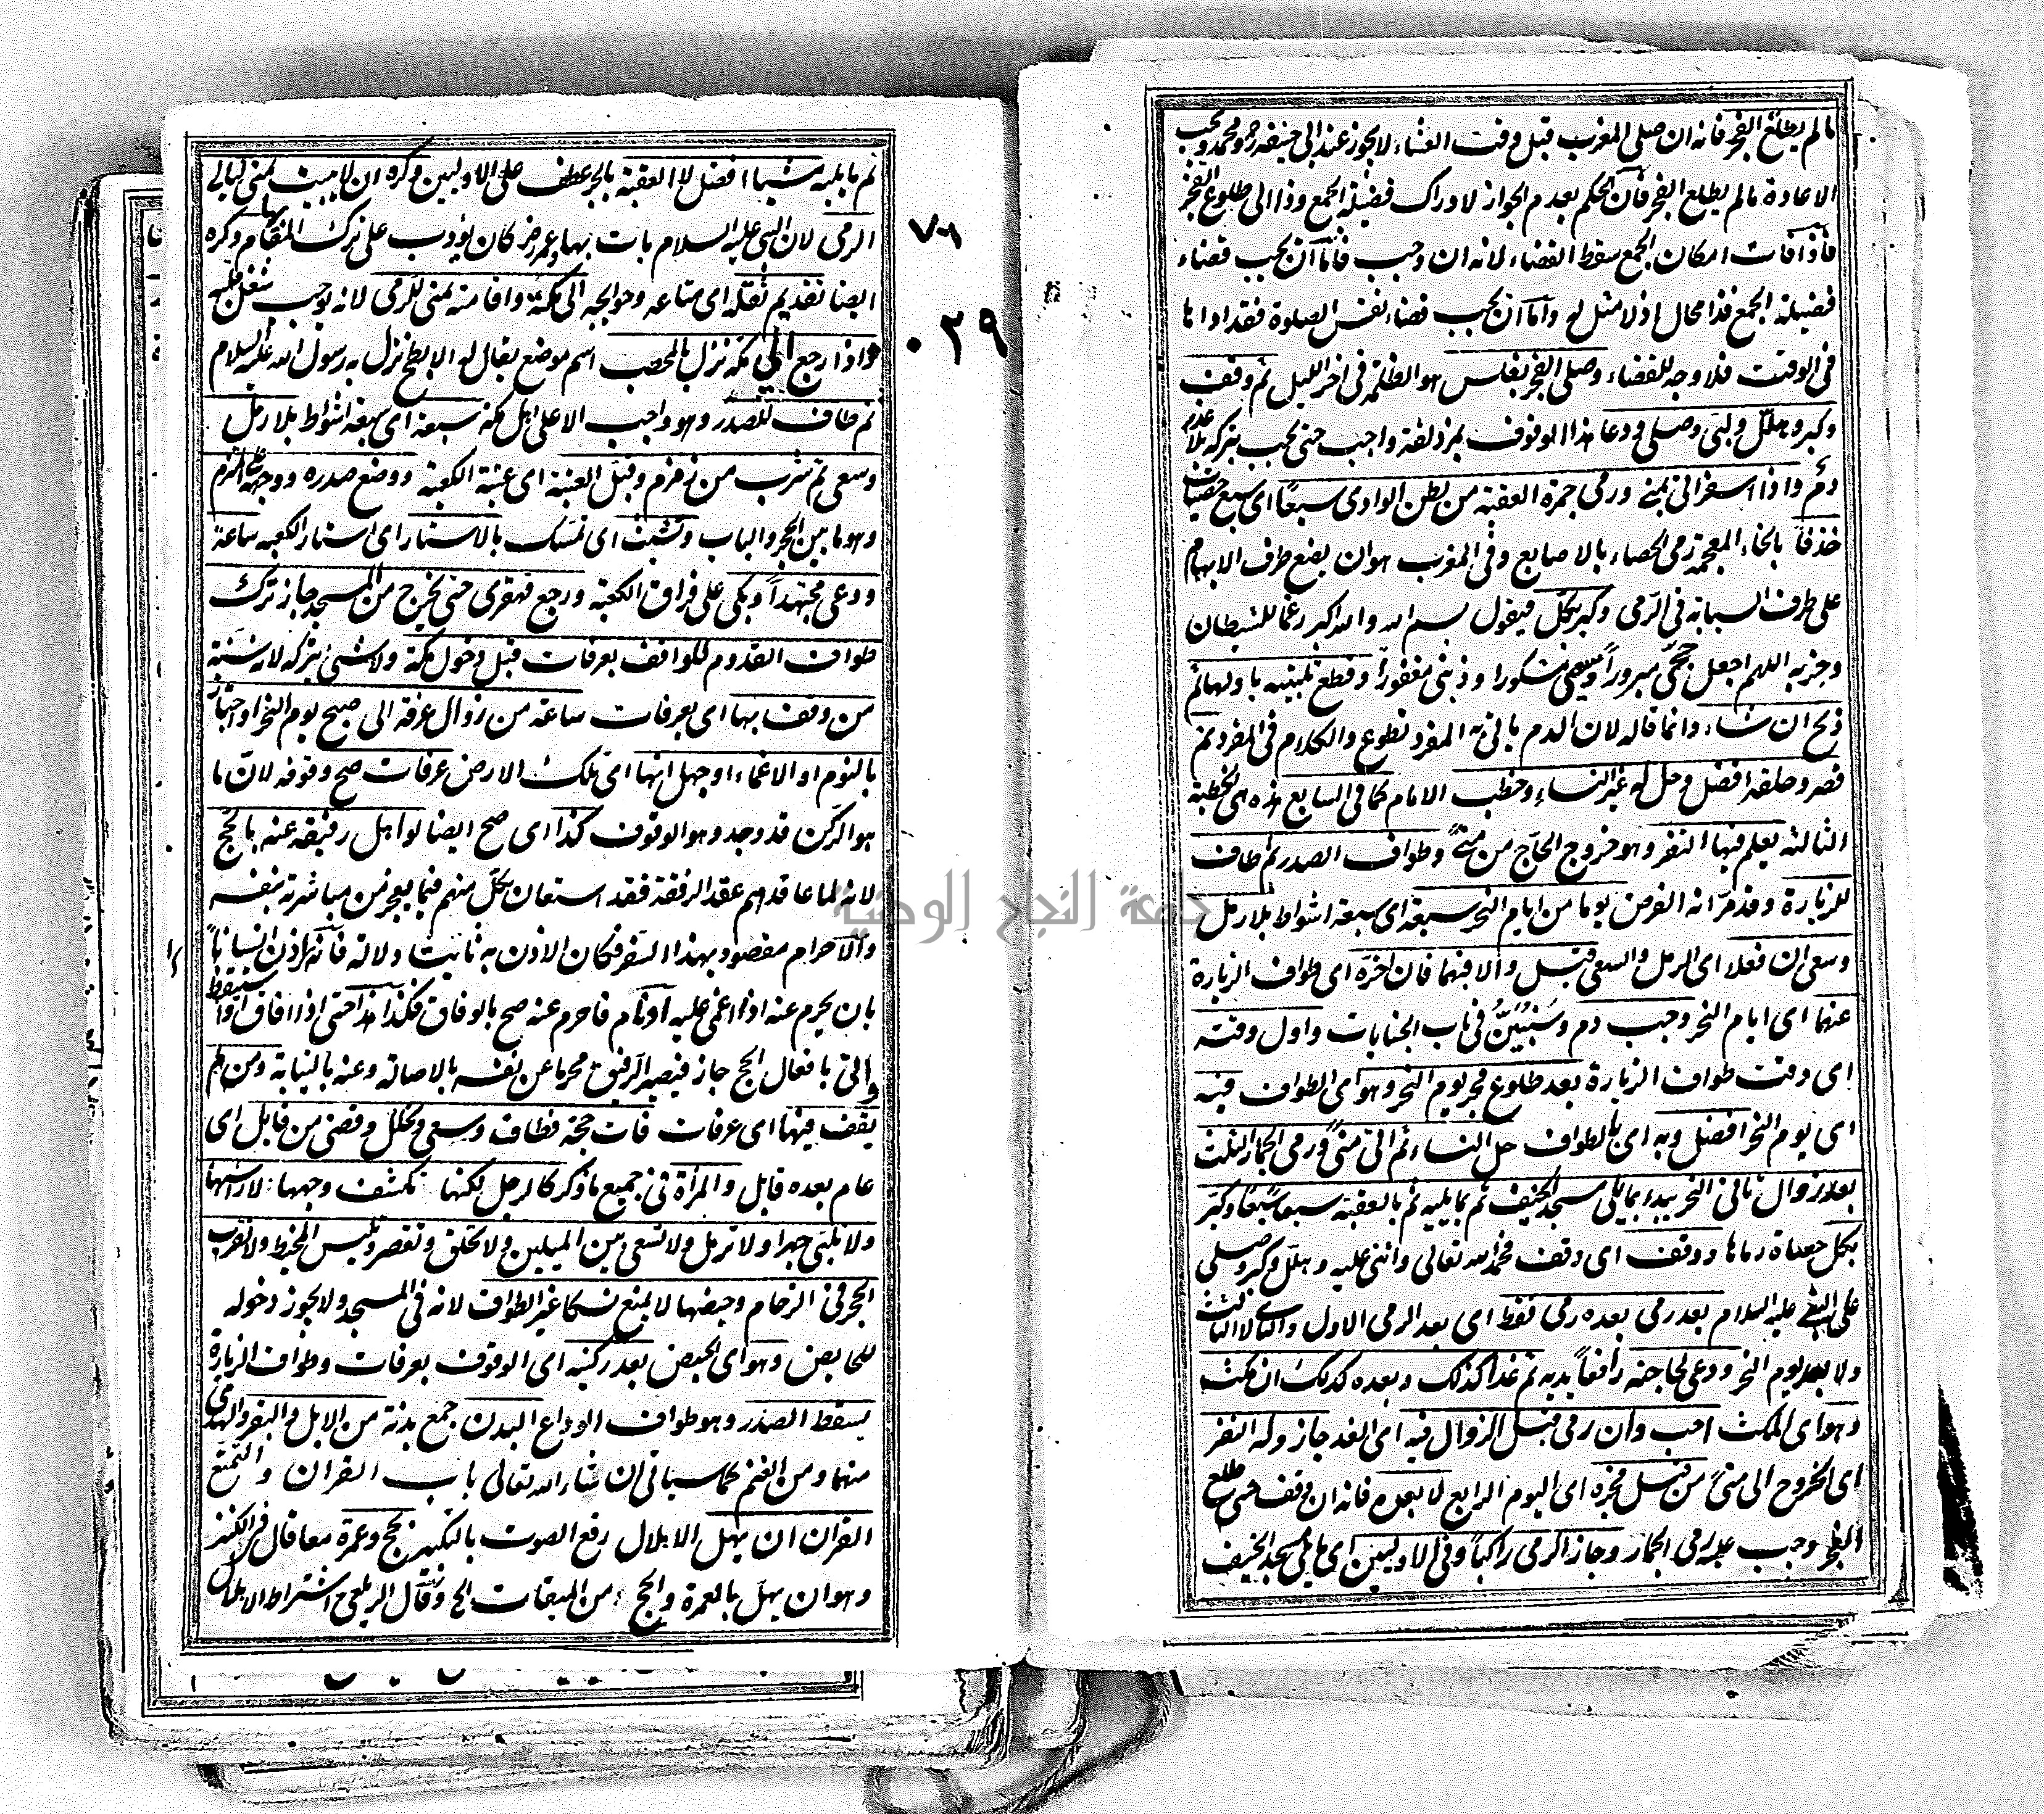 مالم يطلع الفجر فانه ان صلى المغرب قبل وقت العشاء لا يجوز عند ابى حنيفه رح ومحمد ويجب
الاعادة مالم يطلع الفجر فان الحكم بعدم الجواز لادراك فضيلة الجمع وذا الى طلوع الفجر
فاذا فات امكان الجمع سقط القضاء لانه ان وجب فاما ان يجب قضاء
فضيلة الجمع فذا محال اذ لا مثل له واما ان يجب قضاء نفس الصلوة فقد اداها
فى الوقت فلا وجه للقضاء وصلى الفجر بغلس هو الظلمة فى اخر الليل ثم وقف
وكبر وهلل ولبى وصلى ودعا هذا الوقوف بمزدلفة واجب حتى يجب بتركه بلا عذر
دم واذا اسفر اتى بمنى ورمى جمرة العقبة من بطن الوادى سبعا اى سبع حصيات
خذفا بالخاء المعجمة رمى الحصاء بالاصابع وفى المغرب هو ان يضع طرف الابهام
على طرف السبابة فى الرمى وكبر بكل فيقول بسم الله والله اكبر رغما للشيطان
وحزبه اللهم اجعل حجى مبرورا وسعيى مشكورا وذنبى مغفورا وقطع تلبيته باولها ثم
ذبح ان شاء وانما قاله لان الدم ياتى به المفرد تطوع والكلام فى المفرد ثم
قصر وحلقه افضل وحل له غير النساء وخطب الامام كما فى السابع هذه هى الخطبة
الثالثة يعلم فيها النفر وهو خروج الحاج من منى وطواف الصدر ثم طاف
للزيارة وقد مر انه الفرض يوما من ايام النحر سبعة اى سبعة اشواط بلا رمل
وسعى ان فعلا اى الرمل والسعى قبل والا فبهما فان اخره اى طواف الزيارة
عنها اى ايام النحر وجب دم وسنبين فى باب الجنايات واول وقته
اى وقت طواف الزيارة بعد طلوع فجر يوم النحر وهو اى الطواف فيه
اى يوم النحر افضل وبه اى بالطواف حل النساء ثم اتى منى ورمى الجمار الثلث
بعد زوال ثانى النحر يبدء بما يلى مسجد الخيف ثم بما يليه ثم بالعقبة سبعا سبعا وكبر
بكل حصاة رماها ووقف اى وقف فحمد الله تعالى واثنى عليه وهلل وكبر وصلى
على النبى عليه السلام بعد رمى بعده رمى فقط اى بعد الرمى الاول والثانى لا الثالث
ولا بعد يوم النحر ودعى لحاجته رافعا يديه ثم غدا كذلك وبعده كذلك ان مكث
وهو اى المكث احب وان رمى قبل الزوال فيه اى الغد جاز وله النفر
اى الخروج الى منى من قبل فجره اى اليوم الرابع لا بعده فانه ان وقف حتى طلع
الفجر وجب عليه رمى الجمار وجاز الرمى راكبا وفى الاوليين اى ما يلى مسجد الخيف
ثم ما يليه مشيا افضل لا العقبة بالجر عطف على الاوليين وكره ان لا يبيت بمنى ليالى
الرمى لان النبى عليه السلام بات بها وعمر رض كان يؤدب على ترك المقام بها وكره
ايضا تقديم ثقله اى متاعه وحوايجه الى مكة واقامته بمنى للرمى لانه يوجب شغل قلبه
واذا رجع الى مكة نزل بالمحصب اسم موضع يقال له الابطح نزل به رسول الله عليه السلام
ثم طاف للصدر وهو واجب الا على اهل مكة سبعة اى سبعة اشواط بلا رمل
وسعى ثم شرب من زمزم وقبل العتبة اى عتبة الكعبة ووضع صدره ووجهه على الملتزم
وهو ما بين الحجر والباب وتشبث اى تمسك بالاستار اى استار الكعبة ساعة
ودعى مجتهدا وبكى على فراق الكعبة ورجع قهقرى حتى يخرج من المسجد جاز ترك
طواف القدوم للواقف بعرفات قبل دخول مكة ولا شئ بتركه لانه سنة
من وقف بها اى بعرفات ساعة من زوال عرفة الى صبح يوم النحر او اجتاز
بالنوم او الاغماء او جهل انها اى تلك الارض عرفات صح وقوفه لان ما
هو الركن قد وجد وهو الوقوف كذا اى صح ايضا لو اهل رفيقه عنه بالحج
لانه لما عاقدهم عقد الرفقة فقد استعان بكل منهم فيما يعجز من مباشرته بنفسه
والاحرام مقصود بهذا السفر فكان الاذن به ثابت دلالة فانه لو اذن انسانا
بان يحرم عنه اذا اغمى عليه او نام فاحرم عنه صح بالوفاق فكذا هذا حتى اذا افاق او استيقظ
واتى بافعال الحج جاز فيصير الرفيق محرما عن نفسه بالاصالة وعنه بالنيابة ومن لم
يقف فيها اى عرفات فات حجه فطاف وسعى وتحلل وقضى من قابل اى
عام بعده قابل والمراة فى جميع ما ذكر كالرجل لكنها تكشف وجهها لا راسها
ولا تلبى جهرا ولا ترمل ولا تسعى بين الميلين ولا تحلق وتقصر وتلبس المخيط ولا تقرب
الحجر فى الزحام وحيضها لا يمنع نسكا غير الطواف لانه فى المسجد ولا يجوز دخوله
للحايض وهو اى الحيض بعد ركنيه اى الوقوف بعرفات وطواف الزيارة
يسقط الصدر وهو طواف الوداع البدن جمع بدنة من الابل والبقر والهدى
منهما ومن الغنم كما سياتى ان شاء الله تعالى باب القران والتمتع
القران ان يهل الاهلال رفع الصوت بالتكبير بحج وعمرة معا قال فى الكنز
وهو ان يهل بالعمرة والحج من الميقات الخ وقال الزيلعى اشتراط الاهلال
٧٦
٠٣٩
جامعة النجاح الوطنية